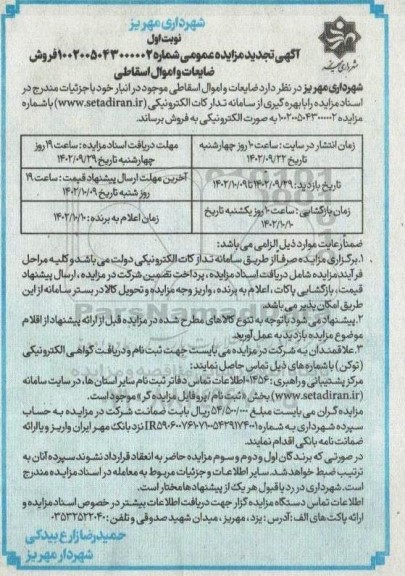 شهرداری مهریز
نوبت اول
آگهی تجدید مزایده عمومی شماره ۱۰۰۲۰۰۵۰۴۳۰۰۰۰۰۲ فروش
ضایعات و اموال اسقاطی
شهرداری مهریز
شهرداری مهریز در نظر دارد ضایعات و اموال اسقاطی موجود در انبار خود با جزئیات مندرج در
اسناد مزایده را با بهره گیری از سامانه تدارکات الکترونیکی (www.setadiran.ir) با شماره
مزایده ۱۰۰۲۰۰۵۰۴۳۰۰۰۰۰۲ به صورت الکترونیکی به فروش برساند.
زمان انتشار در سایت: ساعت ۱۰ روز چهارشنبه
تاریخ ۱۴۰۲/۰۹/۲۲
مهلت دریافت اسناد مزایده: ساعت ۱۹ روز
چهارشنبه تاریخ ۱۴۰۲/۰۹/۲۹
تاریخ بازدید: ۱۴۰۲/۰۹/۲۹ تا ۱۴۰۲/۱۰/۰۹
آخرین مهلت ارسال پیشنهاد قیمت: ساعت ۱۹
روز شنبه تاریخ ۱۴۰۲/۱۰/۰۹
زمان بازگشایی: ساعت ۱۰ روز یکشنبه تاریخ
۱۴۰۲/۱۰/۱۰
زمان اعلام به برنده: ۱۴۰۲/۱۰/۱۰
ضمناً رعایت موارد ذیل الزامی می باشد:
۱.برگزاری مزایده صرفا از طریق سامانه تدارکات الکترونیکی دولت می باشد و کلیه مراحل
فرآیند مزایده شامل دریافت اسناد مزایده، پرداخت تضمین شرکت در مزایده، ارسال پیشنهاد
قیمت، بازگشایی پاکات، اعلام به برنده، واریز وجه مزایده و تحویل کالا در بستر سامانه از این
طریق امکان پذیر می باشد.
۲.پیشنهاد می شود با توجه به تنوع کالاهای مطرح شده در مزایده قبل از ارائه پیشنهاد از اقلام
موضوع مزایده بازدید به عمل آورید.
۳.علاقمندان به شرکت در مزایده می بایست جهت ثبت نام و دریافت گواهی الکترونیکی
(توکن) با شماره های ذیل تماس حاصل نمایند:
مرکز پشتیبانی و راهبری: ۱۴۵۶-اطلاعات تماس دفاتر ثبت نام سایر استان ها، در سایت سامانه
(www.setadiran.ir) بخش «ثبت نام /پروفایل مزایده گر» موجود است.
مزایده گران می بایست مبلغ ۵۴/۵۰۰/۰۰۰ ریال بابت ضمانت شرکت در مزایده به حساب
سپرده شهرداری به شماره IR۵۹۰۶۰۰۷۶۱۷۱۰۰۵۴۲۹۱۷۴۰۰۱ نزد بانک مهر ایران واریز و یا ارائه
ضمانت نامه بانکی اقدام نمایند.
در صورتی که برندگان اول و دوم و سوم مزایده حاضر به انعقاد قرارداد نشوند سپرده آنان به
ترتیب ضبط خواهد شد. سایر اطلاعات و جزئیات مربوط به معامله در اسناد مزایده مندرج
است. شهرداری در رد یا قبول هر یک از پیشنهادها مختار است.
اطلاعات تماس دستگاه مزایده گزار جهت دریافت اطلاعات بیشتر در خصوص اسناد مزایده و
ارائه پاکت های الف: آدرس: یزد، مهریز، میدان شهید صدوقی و تلفن: ۰۳۵۳۲۵۲۲۰۴۰
حمیدرضا زارع بیدکی
شهردار مهریز